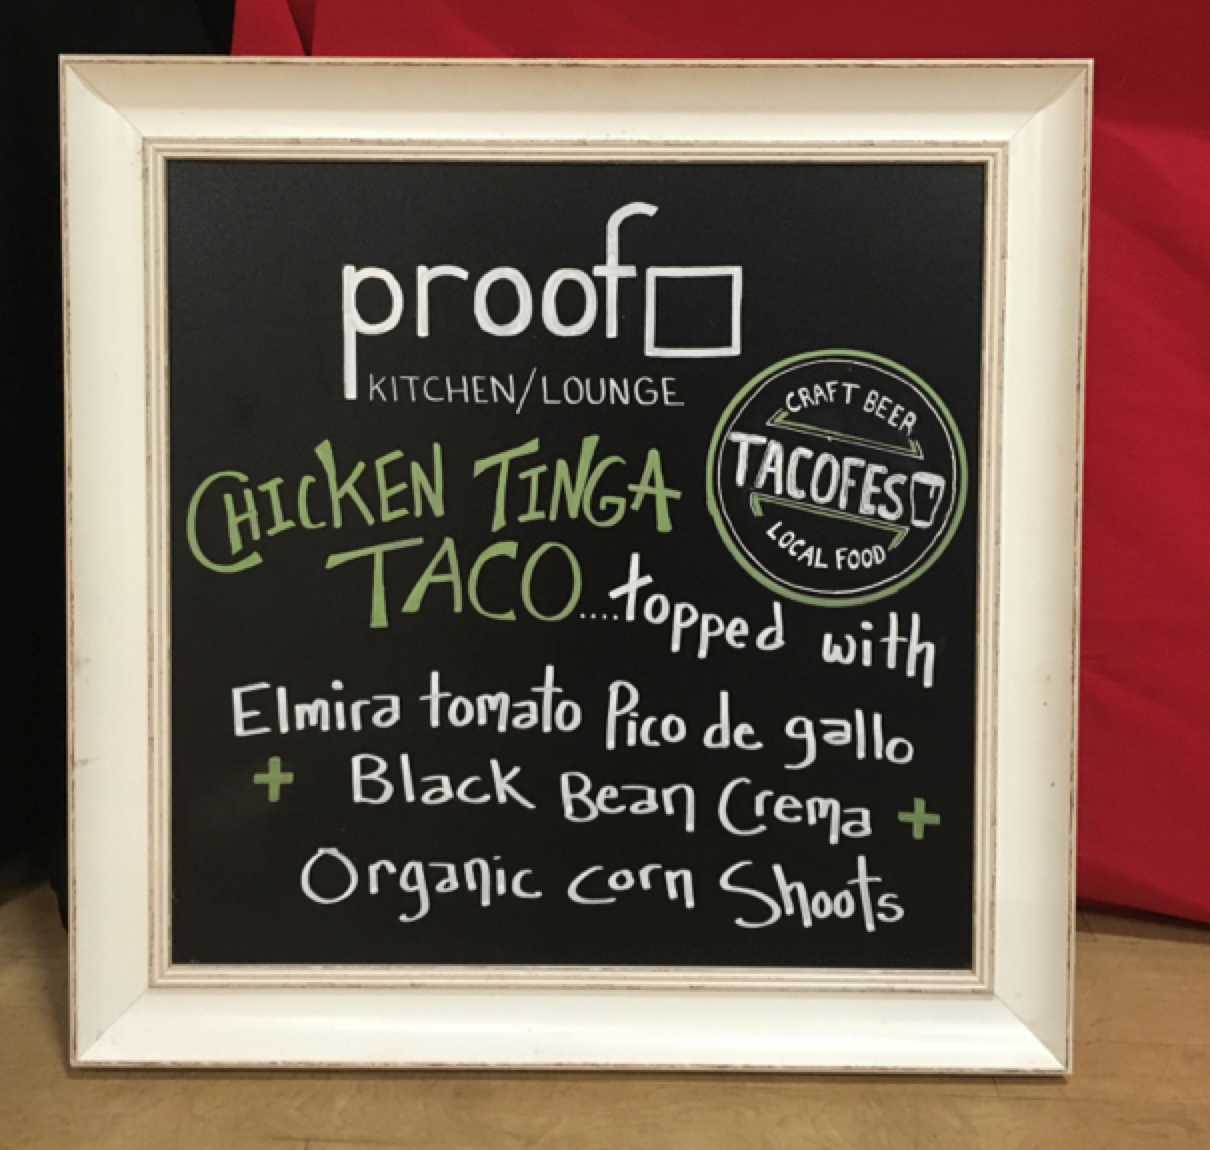 proof
KITCHEN/LOUNGE
CRAFT BEER
TACOFES
LOCAL FOOD
CHICKEN TINGA
TACO....topped with
Elmira tomato Pico de gallo
+ Black Bean Crema +
Organic corn Shoots